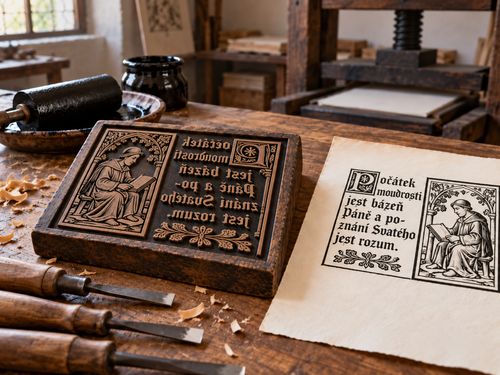 Počátek
moudrosti
jest bázeň
Páně a po-
znání Svatého
jest rozum.
Počátek
moudrosti
jest bázeň
Páně a po-
znání Svatého
jest rozum.